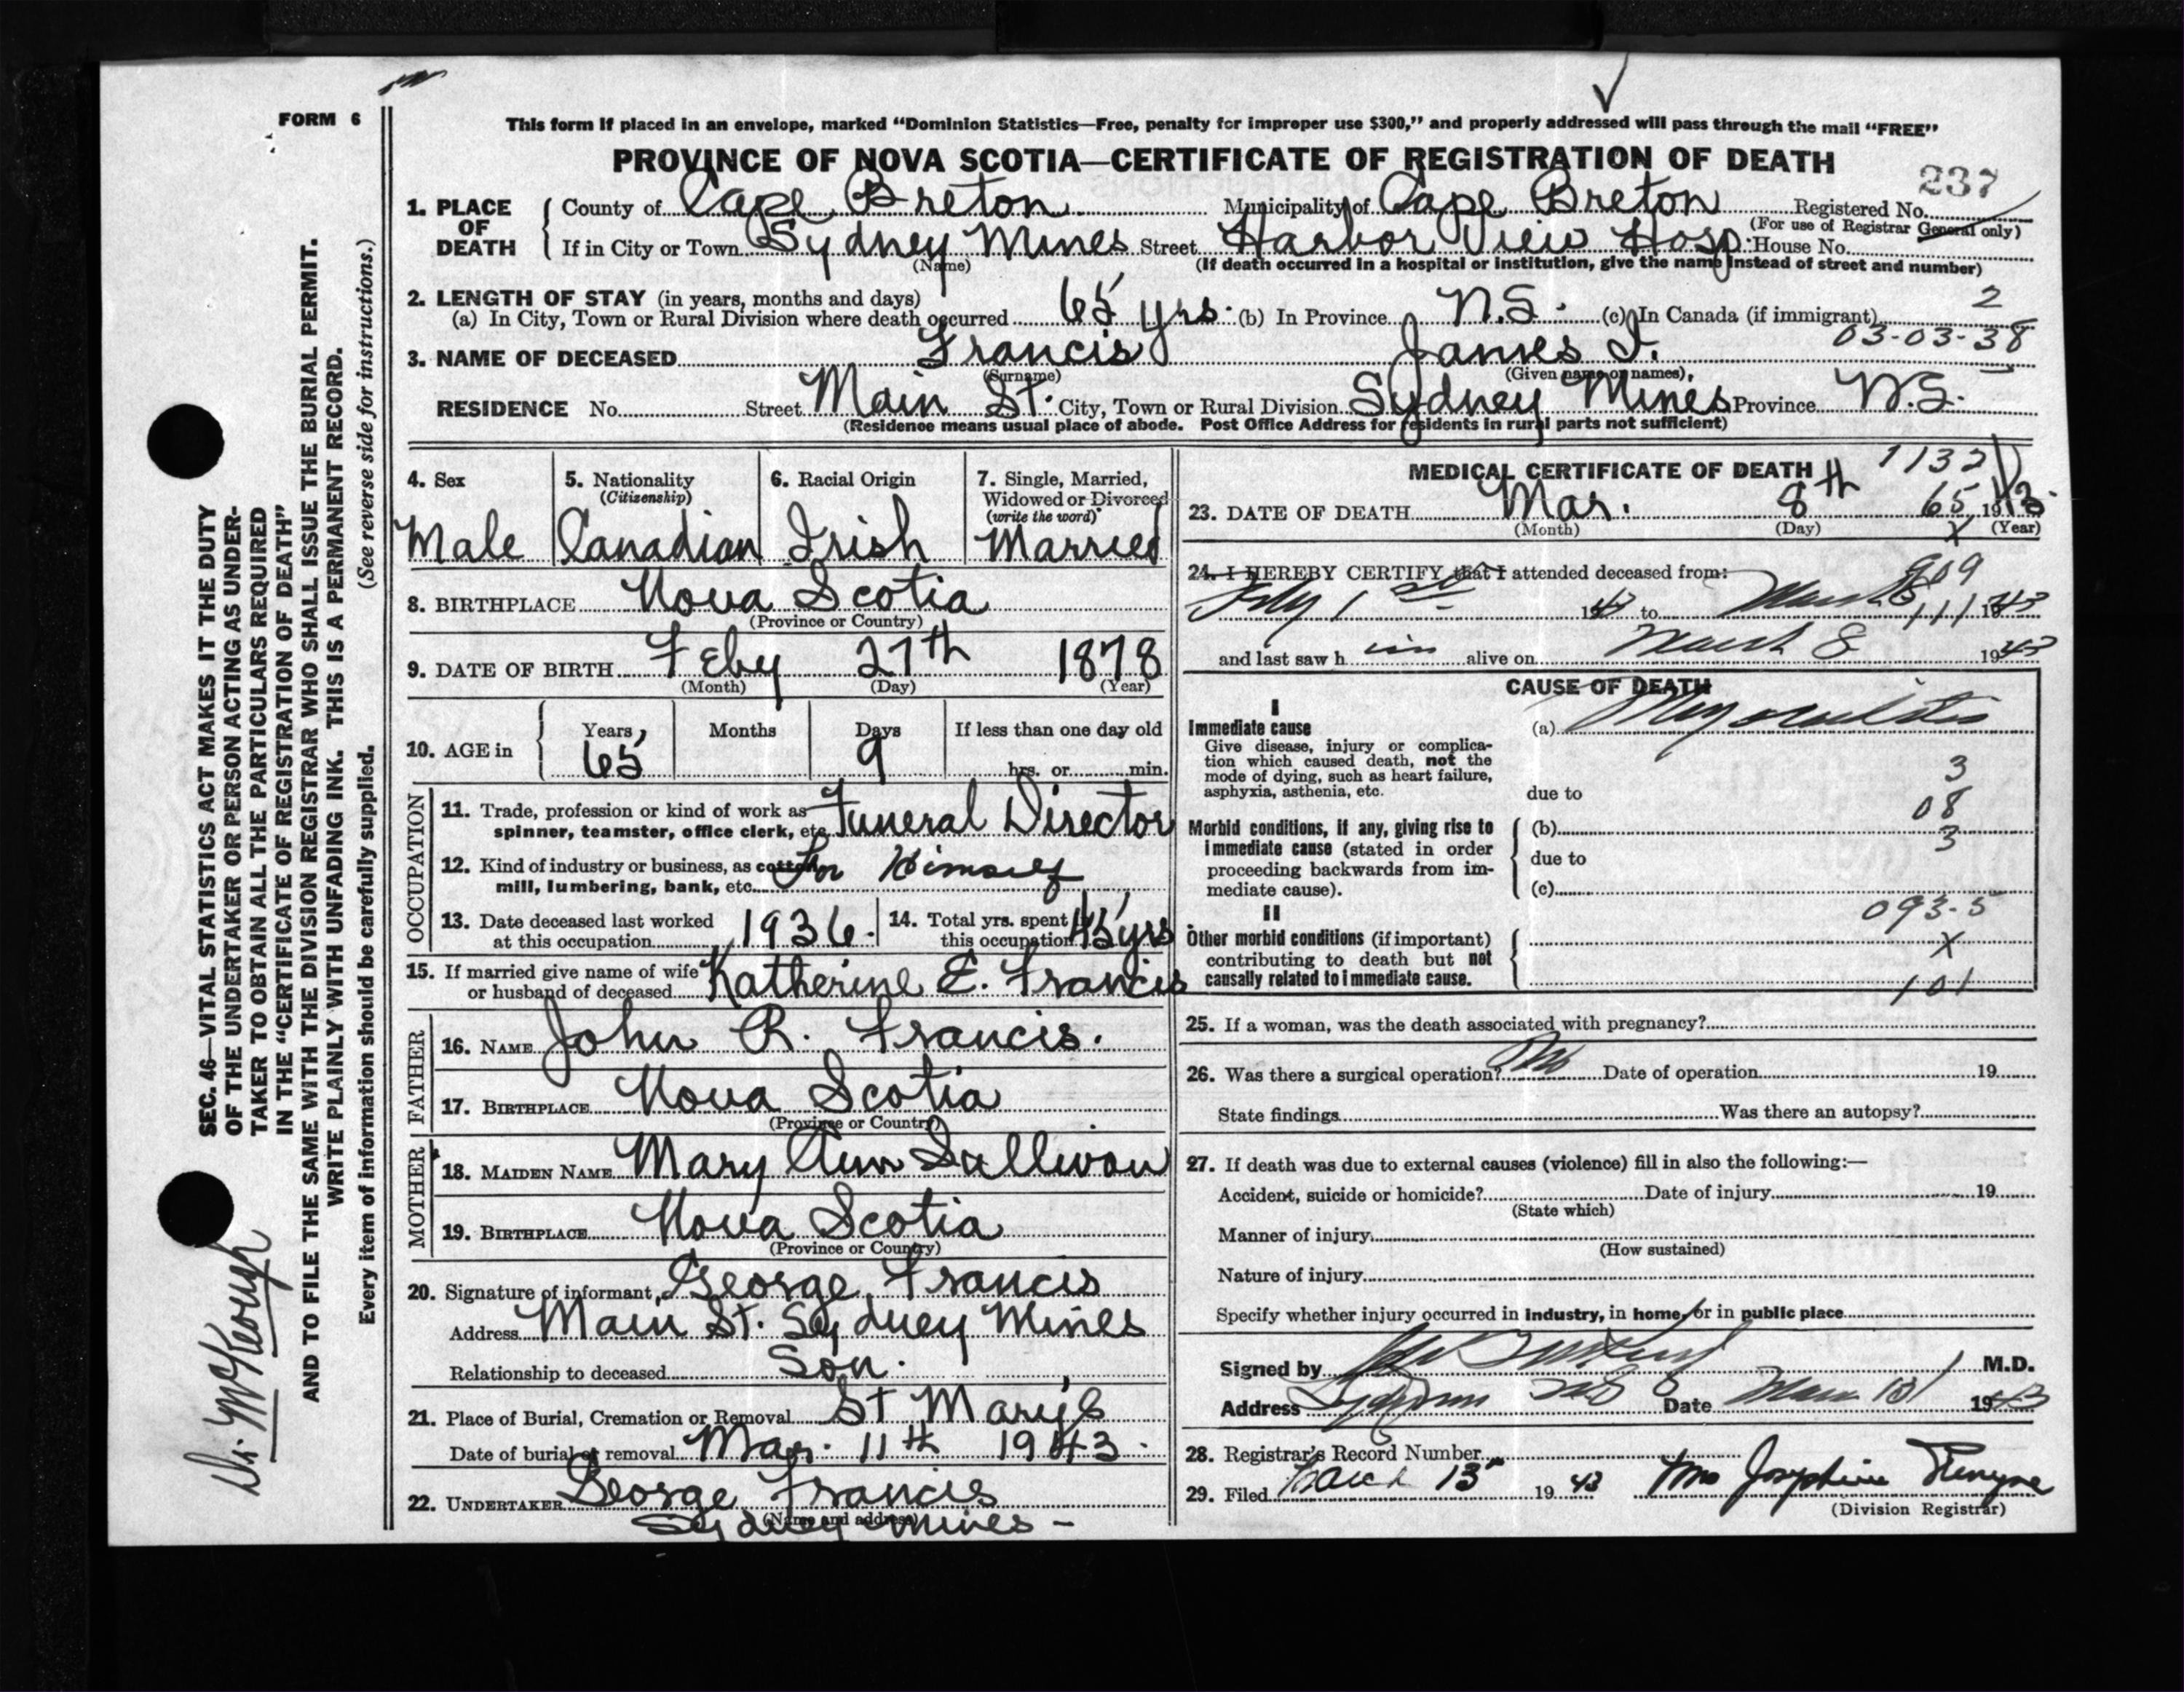 FORM 6
This form if placed in an envelope, marked “Dominion Statistics—Free, penalty for improper use $300,” and properly addressed will pass through the mail “FREE”
PROVINCE OF NOVA SCOTIA—CERTIFICATE OF REGISTRATION OF DEATH
237
1. PLACE OF DEATH County of Cape Breton Municipality of Cape Breton Registered No.
(For use of Registrar General only)
If in City or Town Sydney Mines Street Harbor View Hosp. House No.
(Name) (If death occurred in a hospital or institution, give the name instead of street and number)
2. LENGTH OF STAY (in years, months and days)
(a) In City, Town or Rural Division where death occurred 65 yrs. (b) In Province N.S. (c) In Canada (if immigrant) 2
03-03-38
3. NAME OF DECEASED Francis James I.
(Surname) (Given name or names)
RESIDENCE No. Street Main St. City, Town or Rural Division Sydney Mines Province N.S.
(Residence means usual place of abode. Post Office Address for residents in rural parts not sufficient)
4. Sex 5. Nationality (Citizenship) 6. Racial Origin 7. Single, Married, Widowed or Divorced (write the word)
Male Canadian Irish Married
8. BIRTHPLACE Nova Scotia
(Province or Country)
9. DATE OF BIRTH Feby 27th 1878
(Month) (Day) (Year)
10. AGE in Years Months Days If less than one day old
65 9 hrs. or min.
OCCUPATION
11. Trade, profession or kind of work as spinner, teamster, office clerk, etc. Funeral Director
12. Kind of industry or business, as cotton mill, lumbering, bank, etc. For Himself
13. Date deceased last worked at this occupation 1936. 14. Total yrs. spent in this occupation 45 yrs
15. If married give name of wife or husband of deceased Katherine E. Francis
FATHER
16. NAME John R. Francis.
17. BIRTHPLACE Nova Scotia
(Province or Country)
MOTHER
18. MAIDEN NAME Mary Ann Sullivan
19. BIRTHPLACE Nova Scotia
(Province or Country)
20. Signature of informant George Francis
Address Main St. Sydney Mines
Relationship to deceased Son.
21. Place of Burial, Cremation or Removal St Mary's
Date of burial or removal Mar. 11th 1943.
22. UNDERTAKER George Francis
(Name and address)
Sydney Mines -
MEDICAL CERTIFICATE OF DEATH 1132
23. DATE OF DEATH Mar. 8th 65 1943.
(Month) (Day) X (Year)
24. I HEREBY CERTIFY that I attended deceased from: 909
Feby 1st 1943 to March 8 111 1943
and last saw h im alive on March 8 1943
CAUSE OF DEATH
I
Immediate cause (a) Myocarditis
Give disease, injury or complication which caused death, not the mode of dying, such as heart failure, asphyxia, asthenia, etc.
3
due to
08
Morbid conditions, if any, giving rise to immediate cause (stated in order proceeding backwards from immediate cause).
(b)
3
due to
(c)
II
093-5
Other morbid conditions (if important) contributing to death but not causally related to immediate cause.
X
101
25. If a woman, was the death associated with pregnancy?
26. Was there a surgical operation? No Date of operation 19
State findings Was there an autopsy?
27. If death was due to external causes (violence) fill in also the following:—
Accident, suicide or homicide? Date of injury 19
(State which)
Manner of injury
(How sustained)
Nature of injury
Specify whether injury occurred in industry, in home, or in public place
Signed by M.D.
Address Date 1943
28. Registrar's Record Number
29. Filed March 15 1943 Mrs Josephine
(Division Registrar)
SEC. 46—VITAL STATISTICS ACT MAKES IT THE DUTY
OF THE UNDERTAKER OR PERSON ACTING AS UNDER-
TAKER TO OBTAIN ALL THE PARTICULARS REQUIRED
IN THE “CERTIFICATE OF REGISTRATION OF DEATH”
AND TO FILE THE SAME WITH THE DIVISION REGISTRAR WHO SHALL ISSUE THE BURIAL PERMIT.
WRITE PLAINLY WITH UNFADING INK. THIS IS A PERMANENT RECORD.
(See reverse side for instructions.)
Every item of information should be carefully supplied.
Dr. McKeough